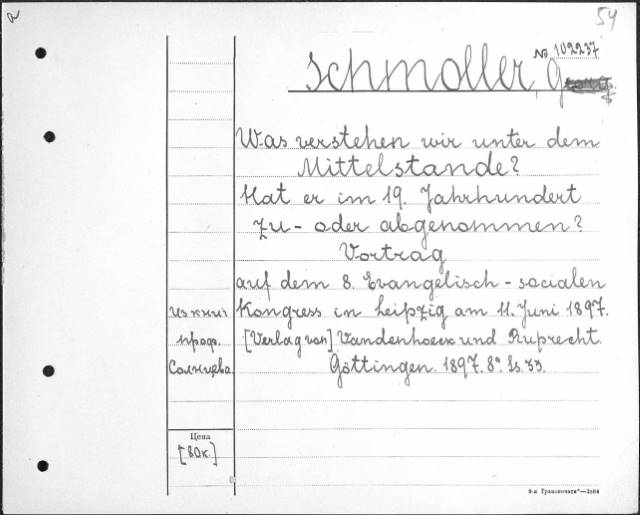 54
№ 102237
Schmoller, G
Was verstehen wir unter dem
Mittelstande?
Hat er im 19. Jahrhundert
zu- oder abgenommen?
Vortrag
auf dem 8. Evangelisch-socialen
Kongress in Leipzig am 11. Juni 1897.
[Verlag von] Vandenhoeck und Ruprecht.
Göttingen. 1897. 8°. Ss. 33.
Из книг
проф.
Солнцева
Цена
[80к.]